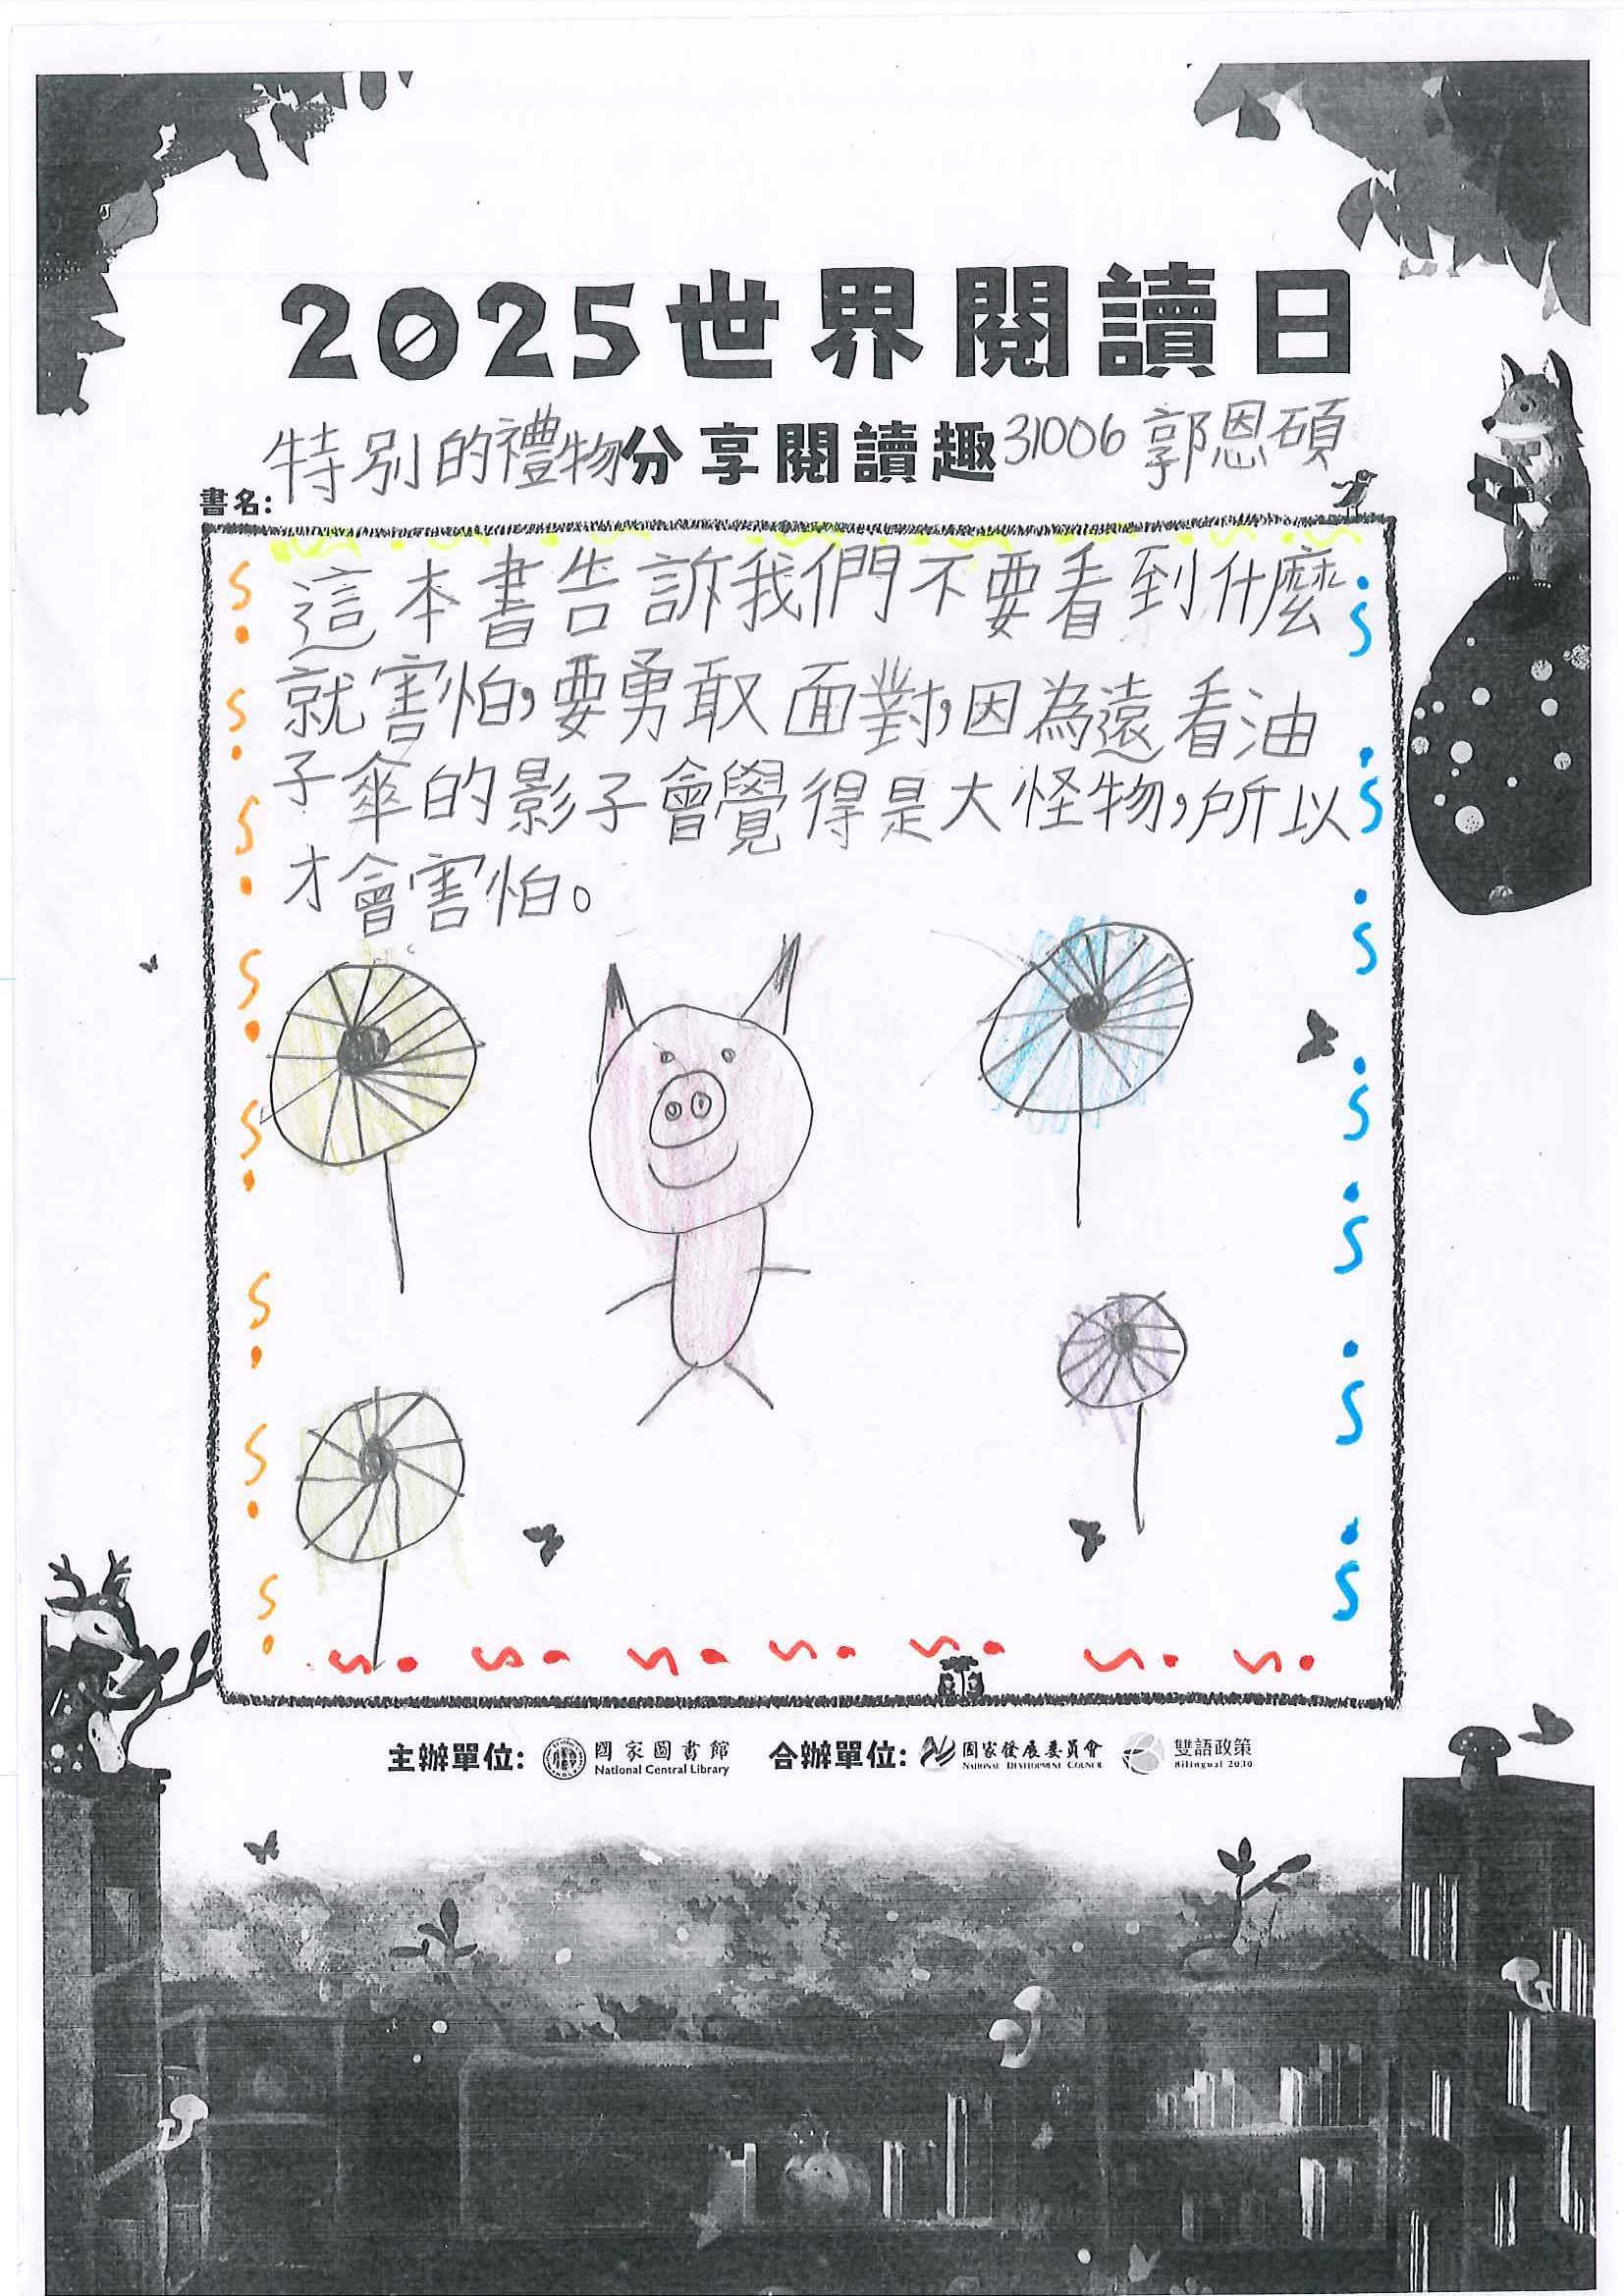 2025世界閱讀日
特別的禮物分享閱讀趣31006 郭恩碩
書名:
這本書告訴我們不要看到什麼
就害怕,要勇敢面對,因為遠看油
子傘的影子會覺得是大怪物,所以
才會害怕。
主辦單位: 國家圖書館 合辦單位: 國家發展委員會 雙語政策
National Central Library NATIONAL DEVELOPMENT COUNCIL Bilingual 2030